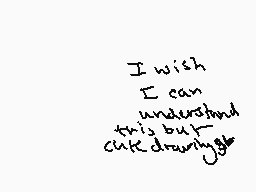 I wish
I can
understand
this but
cute drawings